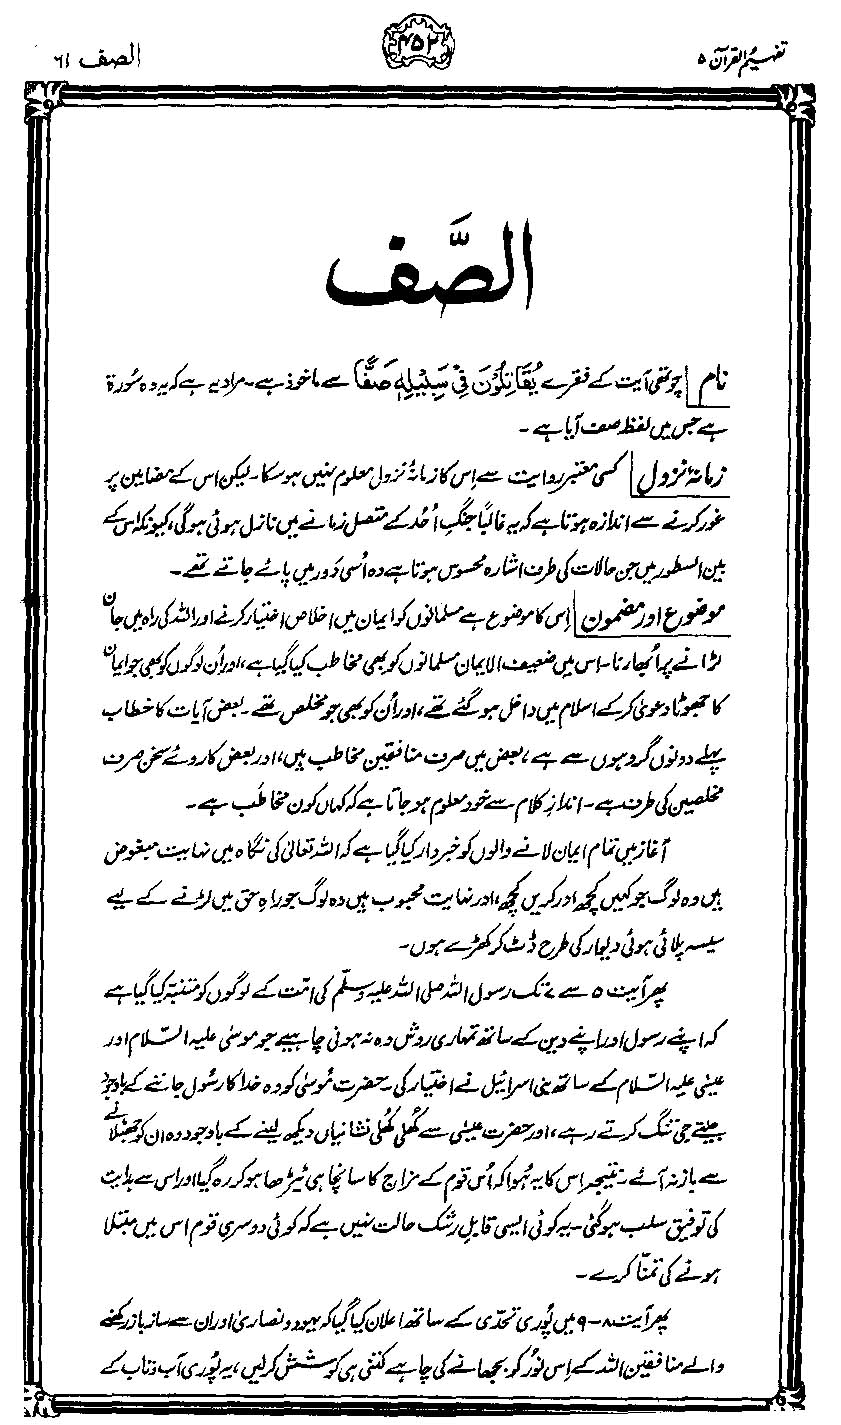 تفہیم القرآن ۵
۴۵۲
الصف ۶۱
الصَّف
نام چوتھی آیت کے فقرے يُقَاتِلُوْنَ فِيْ سَبِيْلِهٖ صَفًّا سے ماخوذ ہے۔ مراد یہ ہے کہ یہ وہ سورۃ
ہے جس میں لفظ صف آیا ہے۔
زمانۂ نزول کسی معتبر روایت سے اِس کا زمانۂ نزول معلوم نہیں ہو سکا۔ لیکن اس کے مضامین پر
غور کرنے سے اندازہ ہوتا ہے کہ یہ غالباً جنگِ اُحُد کے متصل زمانے میں نازل ہوئی ہوگی، کیونکہ اس کے
بین السطور میں جن حالات کی طرف اشارہ محسوس ہوتا ہے وہ اُسی دَور میں پائے جاتے تھے۔
موضوع اور مضمون اِس کا موضوع ہے مسلمانوں کو ایمان میں اخلاص اختیار کرنے اور اللہ کی راہ میں جان
لڑانے پر اُبھارنا۔ اس میں ضعیف الایمان مسلمانوں کو بھی مخاطب کیا گیا ہے، اور اُن لوگوں کو بھی جو ایمان
کا جھوٹا دعویٰ کر کے اسلام میں داخل ہو گئے تھے، اور اُن کو بھی جو مخلص تھے۔ بعض آیات کا خطاب
پہلے دونوں گروہوں سے ہے، بعض میں صرف منافقین مخاطب ہیں، اور بعض کا روئے سخن صرف
مخلصین کی طرف ہے۔ اندازِ کلام سے خود معلوم ہو جاتا ہے کہ کہاں کون مخاطَب ہے۔
آغاز میں تمام ایمان لانے والوں کو خبردار کیا گیا ہے کہ اللہ تعالیٰ کی نگاہ میں نہایت مبغوض
ہیں وہ لوگ جو کہیں کچھ اور کریں کچھ، اور نہایت محبوب ہیں وہ لوگ جو راہِ حق میں لڑنے کے لیے
سیسہ پلائی ہوئی دیوار کی طرح ڈٹ کر کھڑے ہوں۔
پھر آیت ۵ سے ۷ تک رسول اللہ صلی اللہ علیہ وسلّم کی امّت کے لوگوں کو متنبّہ کیا گیا ہے
کہ اپنے رسول اور اپنے دین کے ساتھ تمہاری روش وہ نہ ہونی چاہیے جو موسیٰ علیہ السّلام اور
عیسیٰ علیہ السّلام کے ساتھ بنی اسرائیل نے اختیار کی۔ حضرت مُوسیٰ کو وہ خدا کا رسُول جاننے کے باوجود
جیتے جی تنگ کرتے رہے، اور حضرت عیسیٰ سے کُھلی کُھلی نشانیاں دیکھ لینے کے باوجود وہ ان کو جھٹلانے
سے باز نہ آئے۔ نتیجہ اس کا یہ ہُوا کہ اُس قوم کے مزاج کا سانچا ہی ٹیڑھا ہو کر رہ گیا اور اس سے ہدایت
کی توفیق سلب ہو گئی۔ یہ کوئی ایسی قابلِ رشک حالت نہیں ہے کہ کوئی دوسری قوم اس میں مبتلا
ہونے کی تمنّا کرے۔
پھر آیت ۸-۹ میں پُوری تحدّی کے ساتھ اعلان کیا گیا کہ یہود و نصاریٰ اور ان سے ساز باز رکھنے
والے منافقین اللہ کے اِس نُور کو بجھانے کی چاہے کتنی ہی کوشش کر لیں، یہ پُوری آب و تاب کے